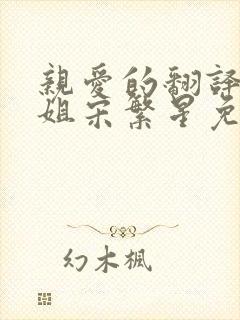 親愛的翻譯
姐宋繁星免
幻木楓